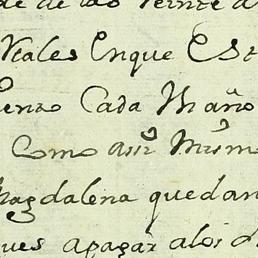 de de las veinte
Reales Enque Es
Cada Un año
Como assi Mismo
Magdalena quedan
ues apagar alos d